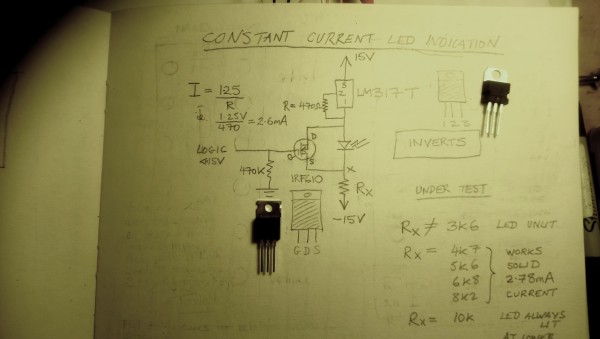 CONSTANT CURRENT LED INDICATION
15V
I = 1.25
R
ie 1.25V = 2.6mA
470
R=470Ω
3
2
1
LM317-T
1 2 3
INVERTS
LOGIC
<15V
470K
G
D
S
IRF610
X
Rx
-15V
G D S
UNDER TEST
Rx ≠ 3K6 LED UNLIT
Rx = 4K7
5K6
6K8
8K2
WORKS
SOLID
2.78mA
CURRENT
Rx = 10K LED ALWAYS
LIT
AT LOWER